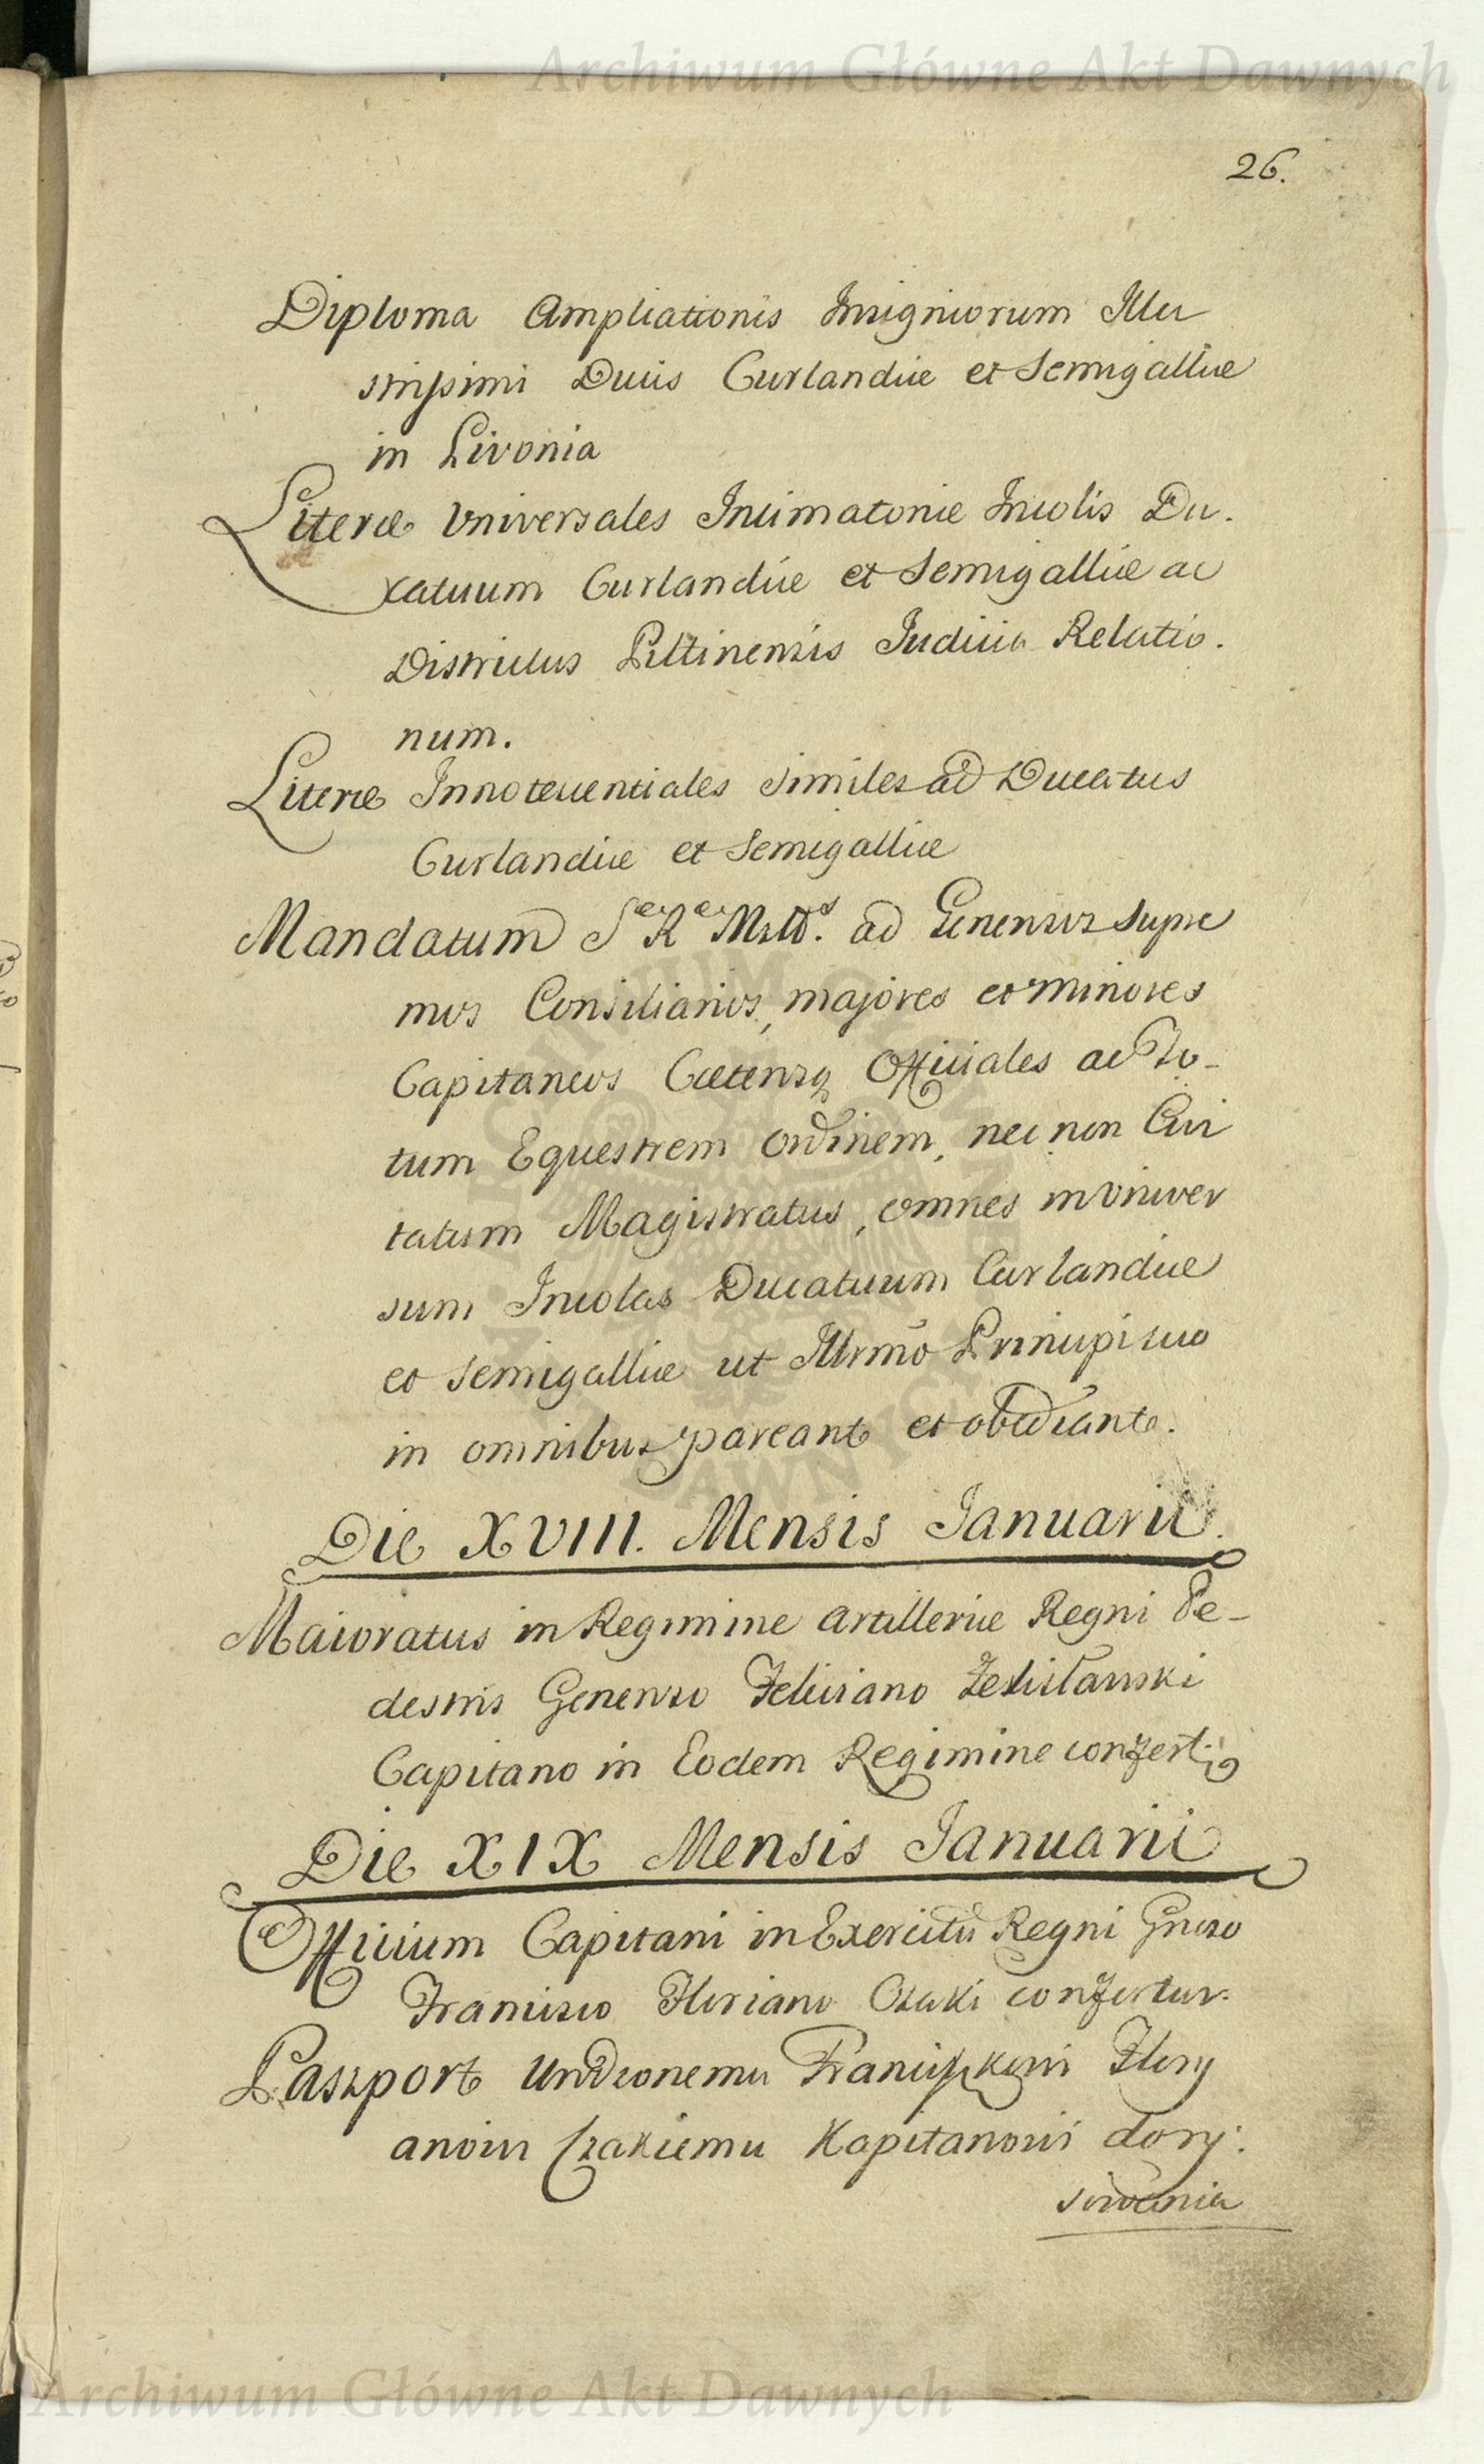 Archiwum Główne Akt Dawnych
26.
Diploma Ampliationis Insigniorum Illu
strissimi Ducis Curlandiæ et Semigalliæ
in Livonia
Literæ Universales Intimatoriæ Incolis Du.
catuum Curlandiæ et Semigalliæ ac
Districtus Piltinensis Judicia Relatio.
num.
Literæ Innotescentiales similes ad Ducatus
Curlandiæ et Semigalliæ
Mandatum Sæ Ræ Mttis. ad Generosos supre
mos Consiliarios, majores et minores
Capitaneos Cæterosq Officiales ac To-
tum Equestrem Ordinem, nec non Civi
tatum Magistratus, omnes in Univer
sum Incolas Ducatuum Curlandiæ
et Semigalliæ ut Illrmo Principi suo
in omnibus pareant et obediant.
Die XVIII. Mensis Januarii.
Maioratus in Regimine Artilleriæ Regni Pe-
destris Generoso Feliciano
Capitano in Eodem Regimine confert:
Die XIX Mensis Januarii
Officium Capitani in Exercitu Regni Gnroso
Francisco Floriano Czaki confertur.
Paszport Urodzonemu Franciszkowi Flory
anowi Czakiemu Kapitanowi do wy:
Archiwum Główne Akt Dawnych